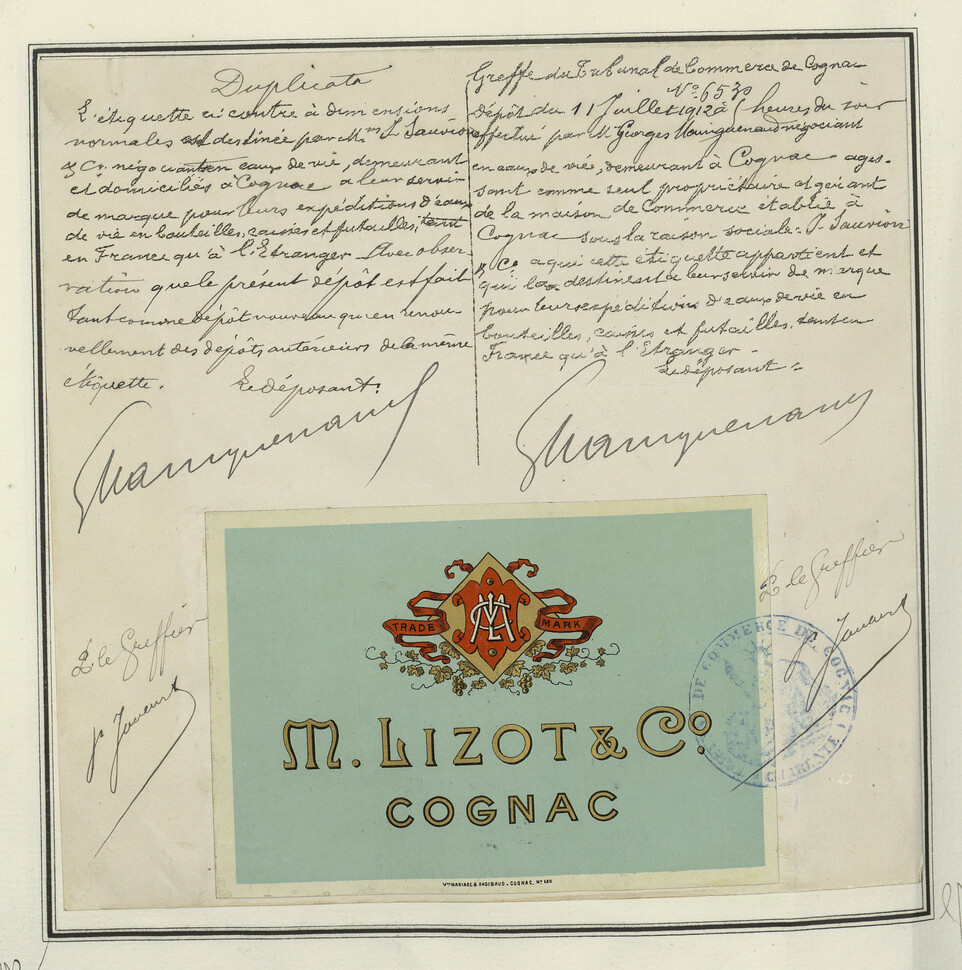 Duplicata
L'étiquette ci contre à dimensions
normales est destinée par M.rs J. Sauvion
& Co. négociants en eaux de vie, demeurant
et domiciliés à Cognac à leur servir
de marque pour leurs expéditions d'eaux
de vie en bouteilles, caisses et futailles, tant
en France qu'à l'Etranger. Avec obser-
vation que le présent dépôt est fait
tant comme dépôt nouveau qu'en renou-
vellement des dépôts antérieurs de la même
étiquette. Le déposant:
Greffe du Tribunal de Commerce de Cognac
No. 653
Dépôt du 11 Juillet 1912 à 5 heures du soir
effectué par M Georges négociant
en eaux de vie, demeurant à Cognac agis-
sant comme seul propriétaire et gérant
de la maison de Commerce établie à
Cognac sous la raison sociale. J. Sauvion
& Co. à qui cette étiquette appartient et
qui la destinent à leur servir de marque
pour leurs expéditions d'eaux de vie en
bouteilles, caisses et futailles, tant en
France qu'à l'Etranger.
Le déposant:
P. le Greffier
P. le Greffier
TRADE MARK
M. LIZOT & Co.
COGNAC
DE COMMERCE DE COGNAC
Vve MARIAGE & ANGIBAUD - COGNAC, No 480